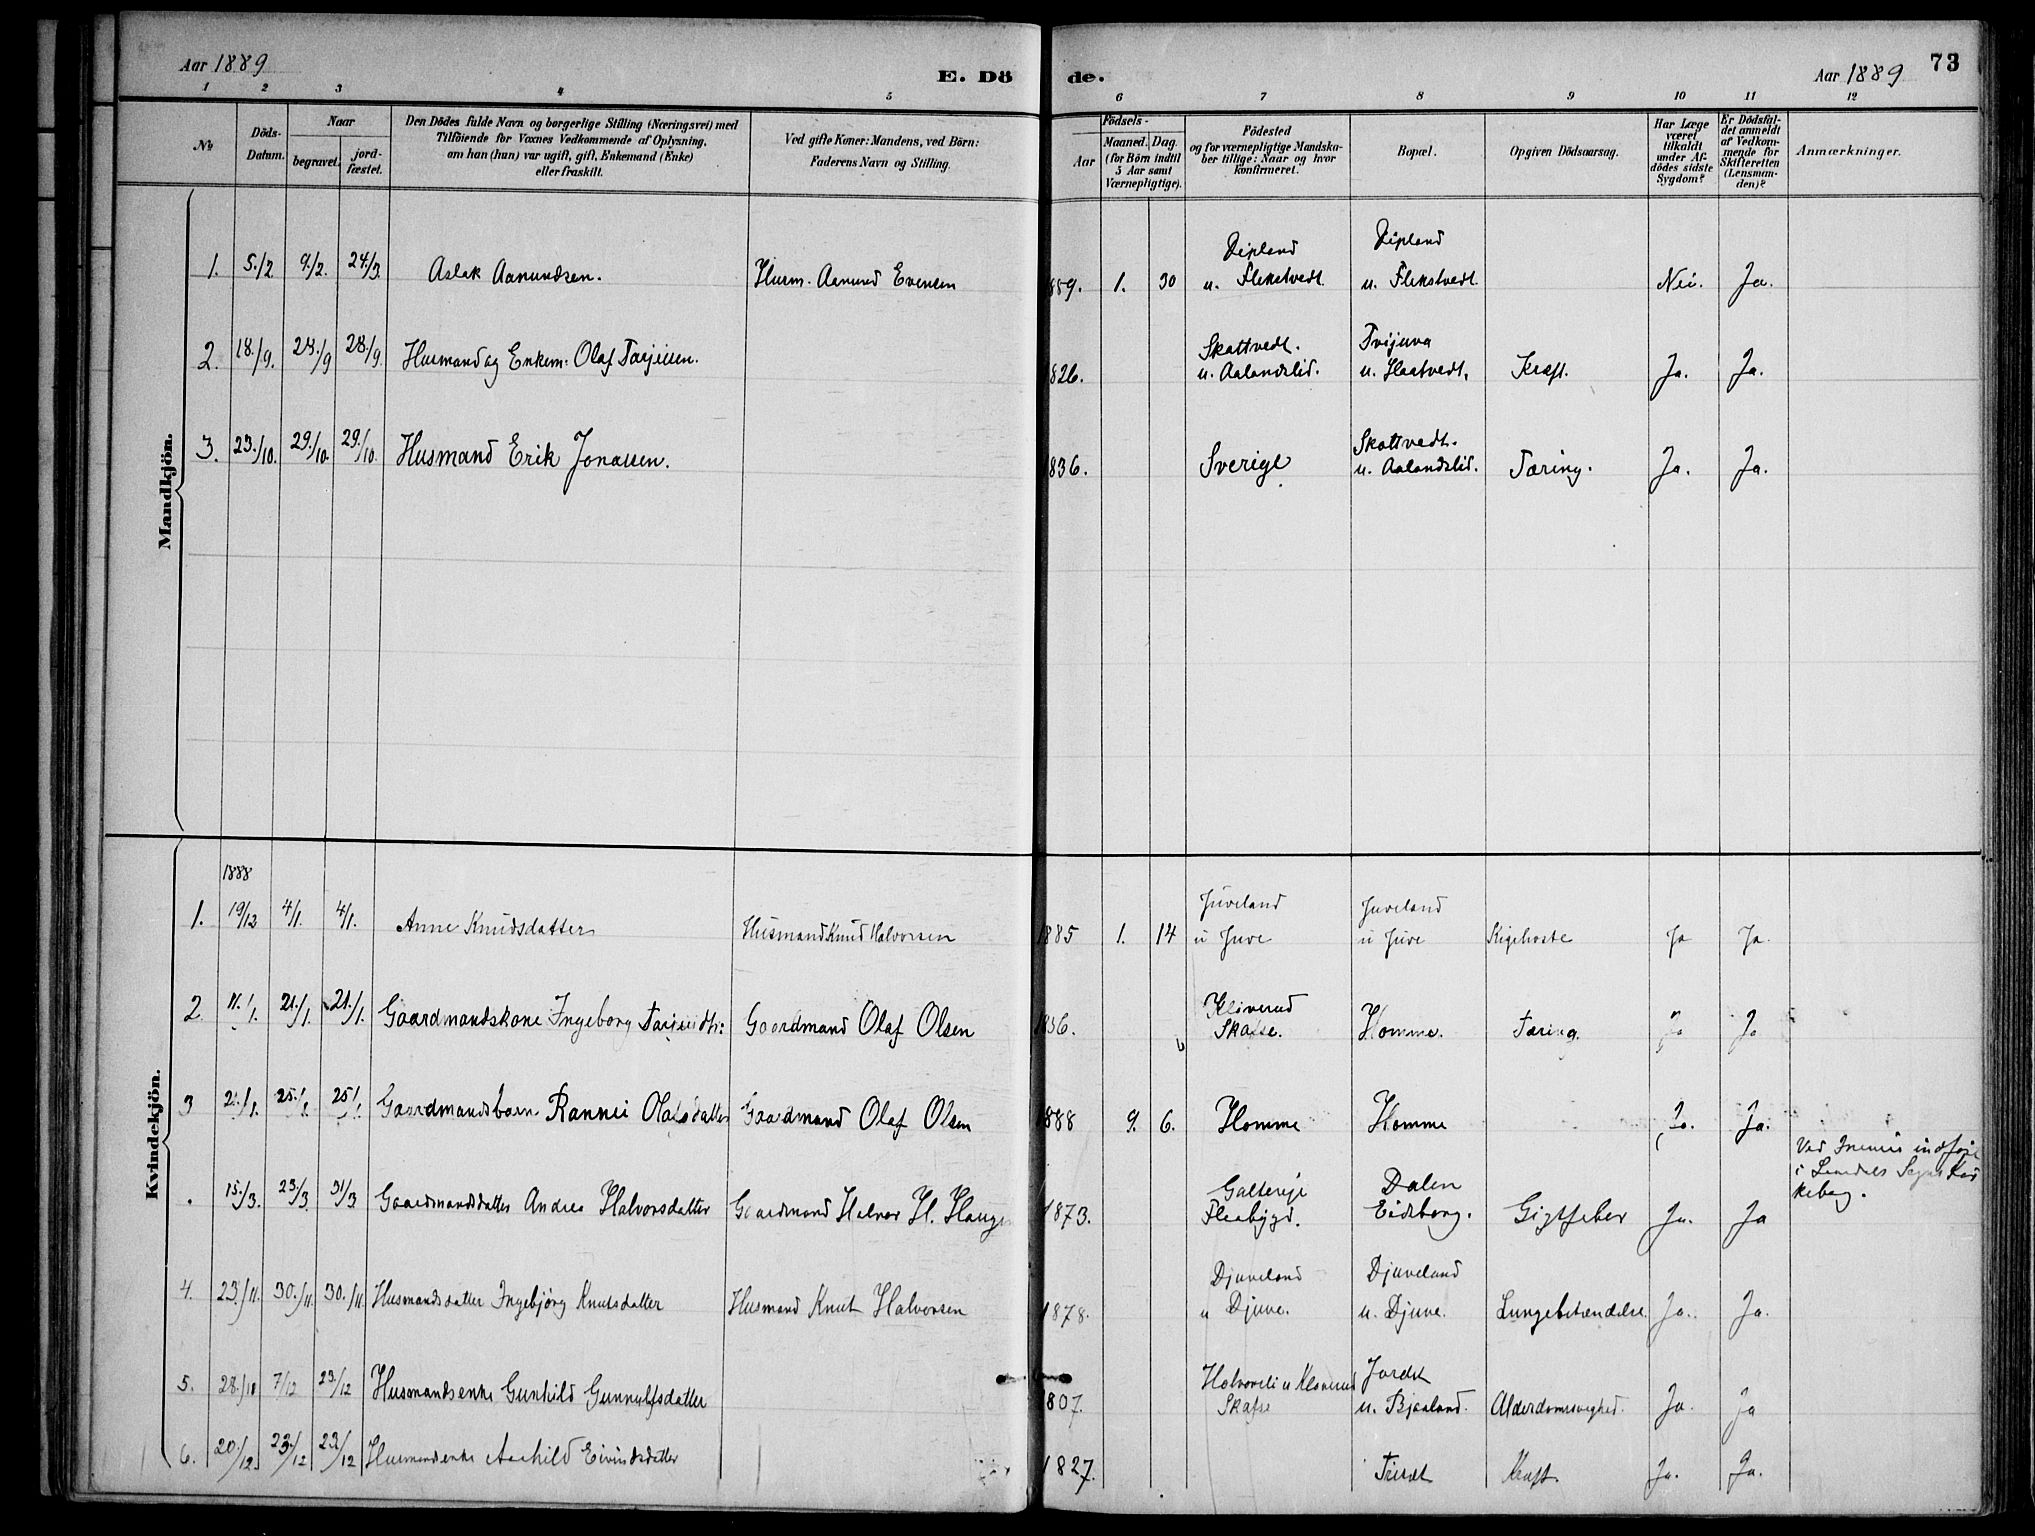 Aar 1889
E. Dö de.
Aar 1889
73
1 2 3 4 5 6 7 8 9 10 11 12
№
Döds-Datum.
Naar
begravet.
jord-fæstet.
Den Dödes fulde Navn og borgerlige Stilling (Næringsvei) med
Tilföiende for Voxnes Vedkommende af Oplysning,
om han (hun) var ugift, gift, Enkemand (Enke)
eller fraskilt.
Ved gifte Koner: Mandens, ved Börn:
Faderens Navn og Stilling.
Födsels-
Aar
Maaned. Dag.
(for Börn indtil
5 Aar samt
Værnepligtige).
Födested
og for værnepligtige Mandska-
ber tillige: Naar og hvor
konfirmeret.
Bopæl.
Opgiven Dödsaarsag.
Har Læge
været
tilkaldt
under Af-
dödes sidste
Sygdom?
Er Dödsfal-
det anmeldt
af Vedkom-
mende for
Skifteretten
(Lensman-
den)?
Anmærkninger.
Mandkjön.
1. 5./2 9./2. 24./3. Aslak Aanundsen. Husm. Aanund Evensen 889. 1. 30 Dipland u. Flekstvedt. Dipland u. Flekstvedt. Nei. Ja.
2. 18./9. 28./9 28./9. Husmand og Enkem: Olaf Tarjeisen. 826. Skattvedt. u. Aalandslid. u. Haatvedt. Kræft. Ja. Ja.
3. 23./10. 29./10. 29./10. Husmand Erik Jonassen. 836. Sverige Skattvedt. u. Aalandslid. Tæring. Ja. Ja.
Kvindekjön.
1888
1. 19/12 4/1. 4/1. Anne Knudsdatter Husmand Knud Halvorsen 1885 1. 14 Juveland u Juve Juveland u Juve Kighoste Ja Ja.
2 11./1. 21./1. 21./1. Gaardmandskone Ingeborg Tarjeidtr: Gaardmand Olaf Olsen 1836. Kliverud Skafse. Homme. Tæring. Ja Ja
3 21./1. 25./1. 25/1. Gaardmandsbarn Rannei Olafsdatter Gaardmand Olaf Olsen 1888 9. 6. Homme Homme Ja. Ja.
. 15./3. 23./3. 31/3 Gaardmandsdatter Andrea Halvorsdatter Gaardmand Halvor H. Hauge 1873. Flaabygd. Dalen Eidsborg. Gigtfeber Ja. Ja
Ved indføjet
i Laurdals Sogns Kir
kebog.
4. 23./11. 30./11. 30./11. Husmandsdatter Ingebjørg Knutsdatter Husmand Knut Halvorsen 1878. Djuveland u Djuve. Djuveland u. Djuve. Lungebetændelse Ja. Ja.
5. 28./10 7/12 23./12 Husmandsenke Gunhild Gunnulfsdatter 1807. Halvorsli u Kliverud Skafse Jordet u. Bjaaland. Alderdomssvaghed. Ja. Ja
6. 20./12. 23./12 23/12 Husmandsenke Aashild Eivindsdatter 1827. Trisæt Kræft. Ja. Ja.